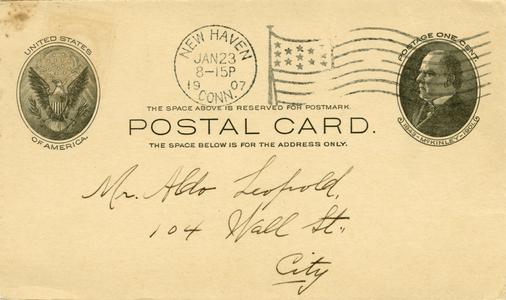 UNITED STATES
OF AMERICA.
NEW HAVEN
JAN 23
8-15P
1907
CONN.
POSTAGE ONE CENT
1843-McKINLEY-1901
THE SPACE ABOVE IS RESERVED FOR POSTMARK.
POSTAL CARD.
THE SPACE BELOW IS FOR THE ADDRESS ONLY.
Mr. Aldo Leopold,
104 Wall St.,
City